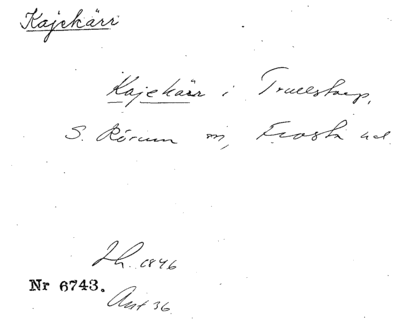 Kajekärr
Kajekärr i Truelstorp,
S. Rörum sn, Frosta hd
Jh. 1846
Nr 6743.
Ant 36.